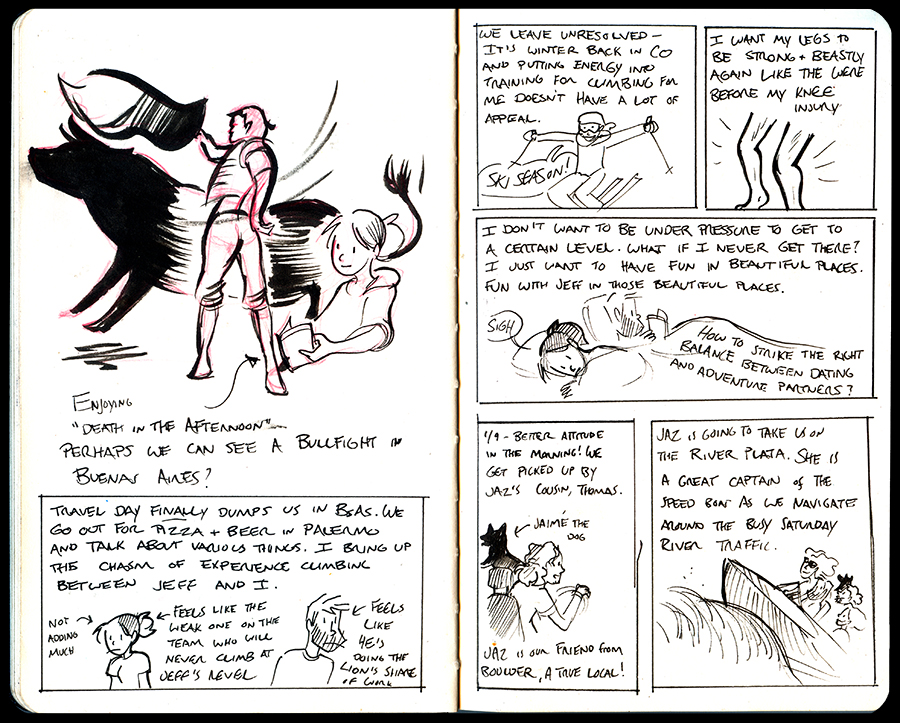 ENJOYING
"DEATH IN THE AFTERNOON"-
PERHAPS WE CAN SEE A BULLFIGHT IN
BUENAS AIRES?
TRAVEL DAY FINALLY DUMPS US IN BSAS. WE
GO OUT FOR PIZZA + BEER IN PALERMO
AND TALK ABOUT VARIOUS THINGS. I BRING UP
THE CHASM OF EXPERIENCE CLIMBING
BETWEEN JEFF AND I.
NOT
ADDING
MUCH
FEELS LIKE THE
WEAK ONE ON THE
TEAM WHO WILL
NEVER CLIMB AT
JEFF'S LEVEL
FEELS
LIKE
HE'S
DOING THE
LION'S SHARE
OF WORK
WE LEAVE UNRESOLVED -
IT'S WINTER BACK IN CO
AND PUTTING ENERGY INTO
TRAINING FOR CLIMBING FOR
ME DOESN'T HAVE A LOT OF
APPEAL.
SKI SEASON!
I WANT MY LEGS TO
BE STRONG + BEASTLY
AGAIN LIKE THE WERE
BEFORE MY KNEE
INJURY
I DON'T WANT TO BE UNDER PRESSURE TO GET TO
A CERTAIN LEVEL. WHAT IF I NEVER GET THERE?
I JUST WANT TO HAVE FUN IN BEAUTIFUL PLACES.
FUN WITH JEFF IN THOSE BEAUTIFUL PLACES.
SIGH
HOW TO STRIKE THE RIGHT
BALANCE BETWEEN DATING
AND ADVENTURE PARTNERS?
1/9 - BETTER ATTITUDE
IN THE MORNING! WE
GET PICKED UP BY
JAZ'S COUSIN, THOMAS.
JAIMÉ THE
DOG
JAZ IS OUR FRIEND FROM
BOULDER, A TRUE LOCAL!
JAZ IS GOING TO TAKE US ON
THE RIVER PLATA. SHE IS
A GREAT CAPTAIN OF THE
SPEED BOAT AS WE NAVIGATE
AROUND THE BUSY SATURDAY
RIVER TRAFFIC.